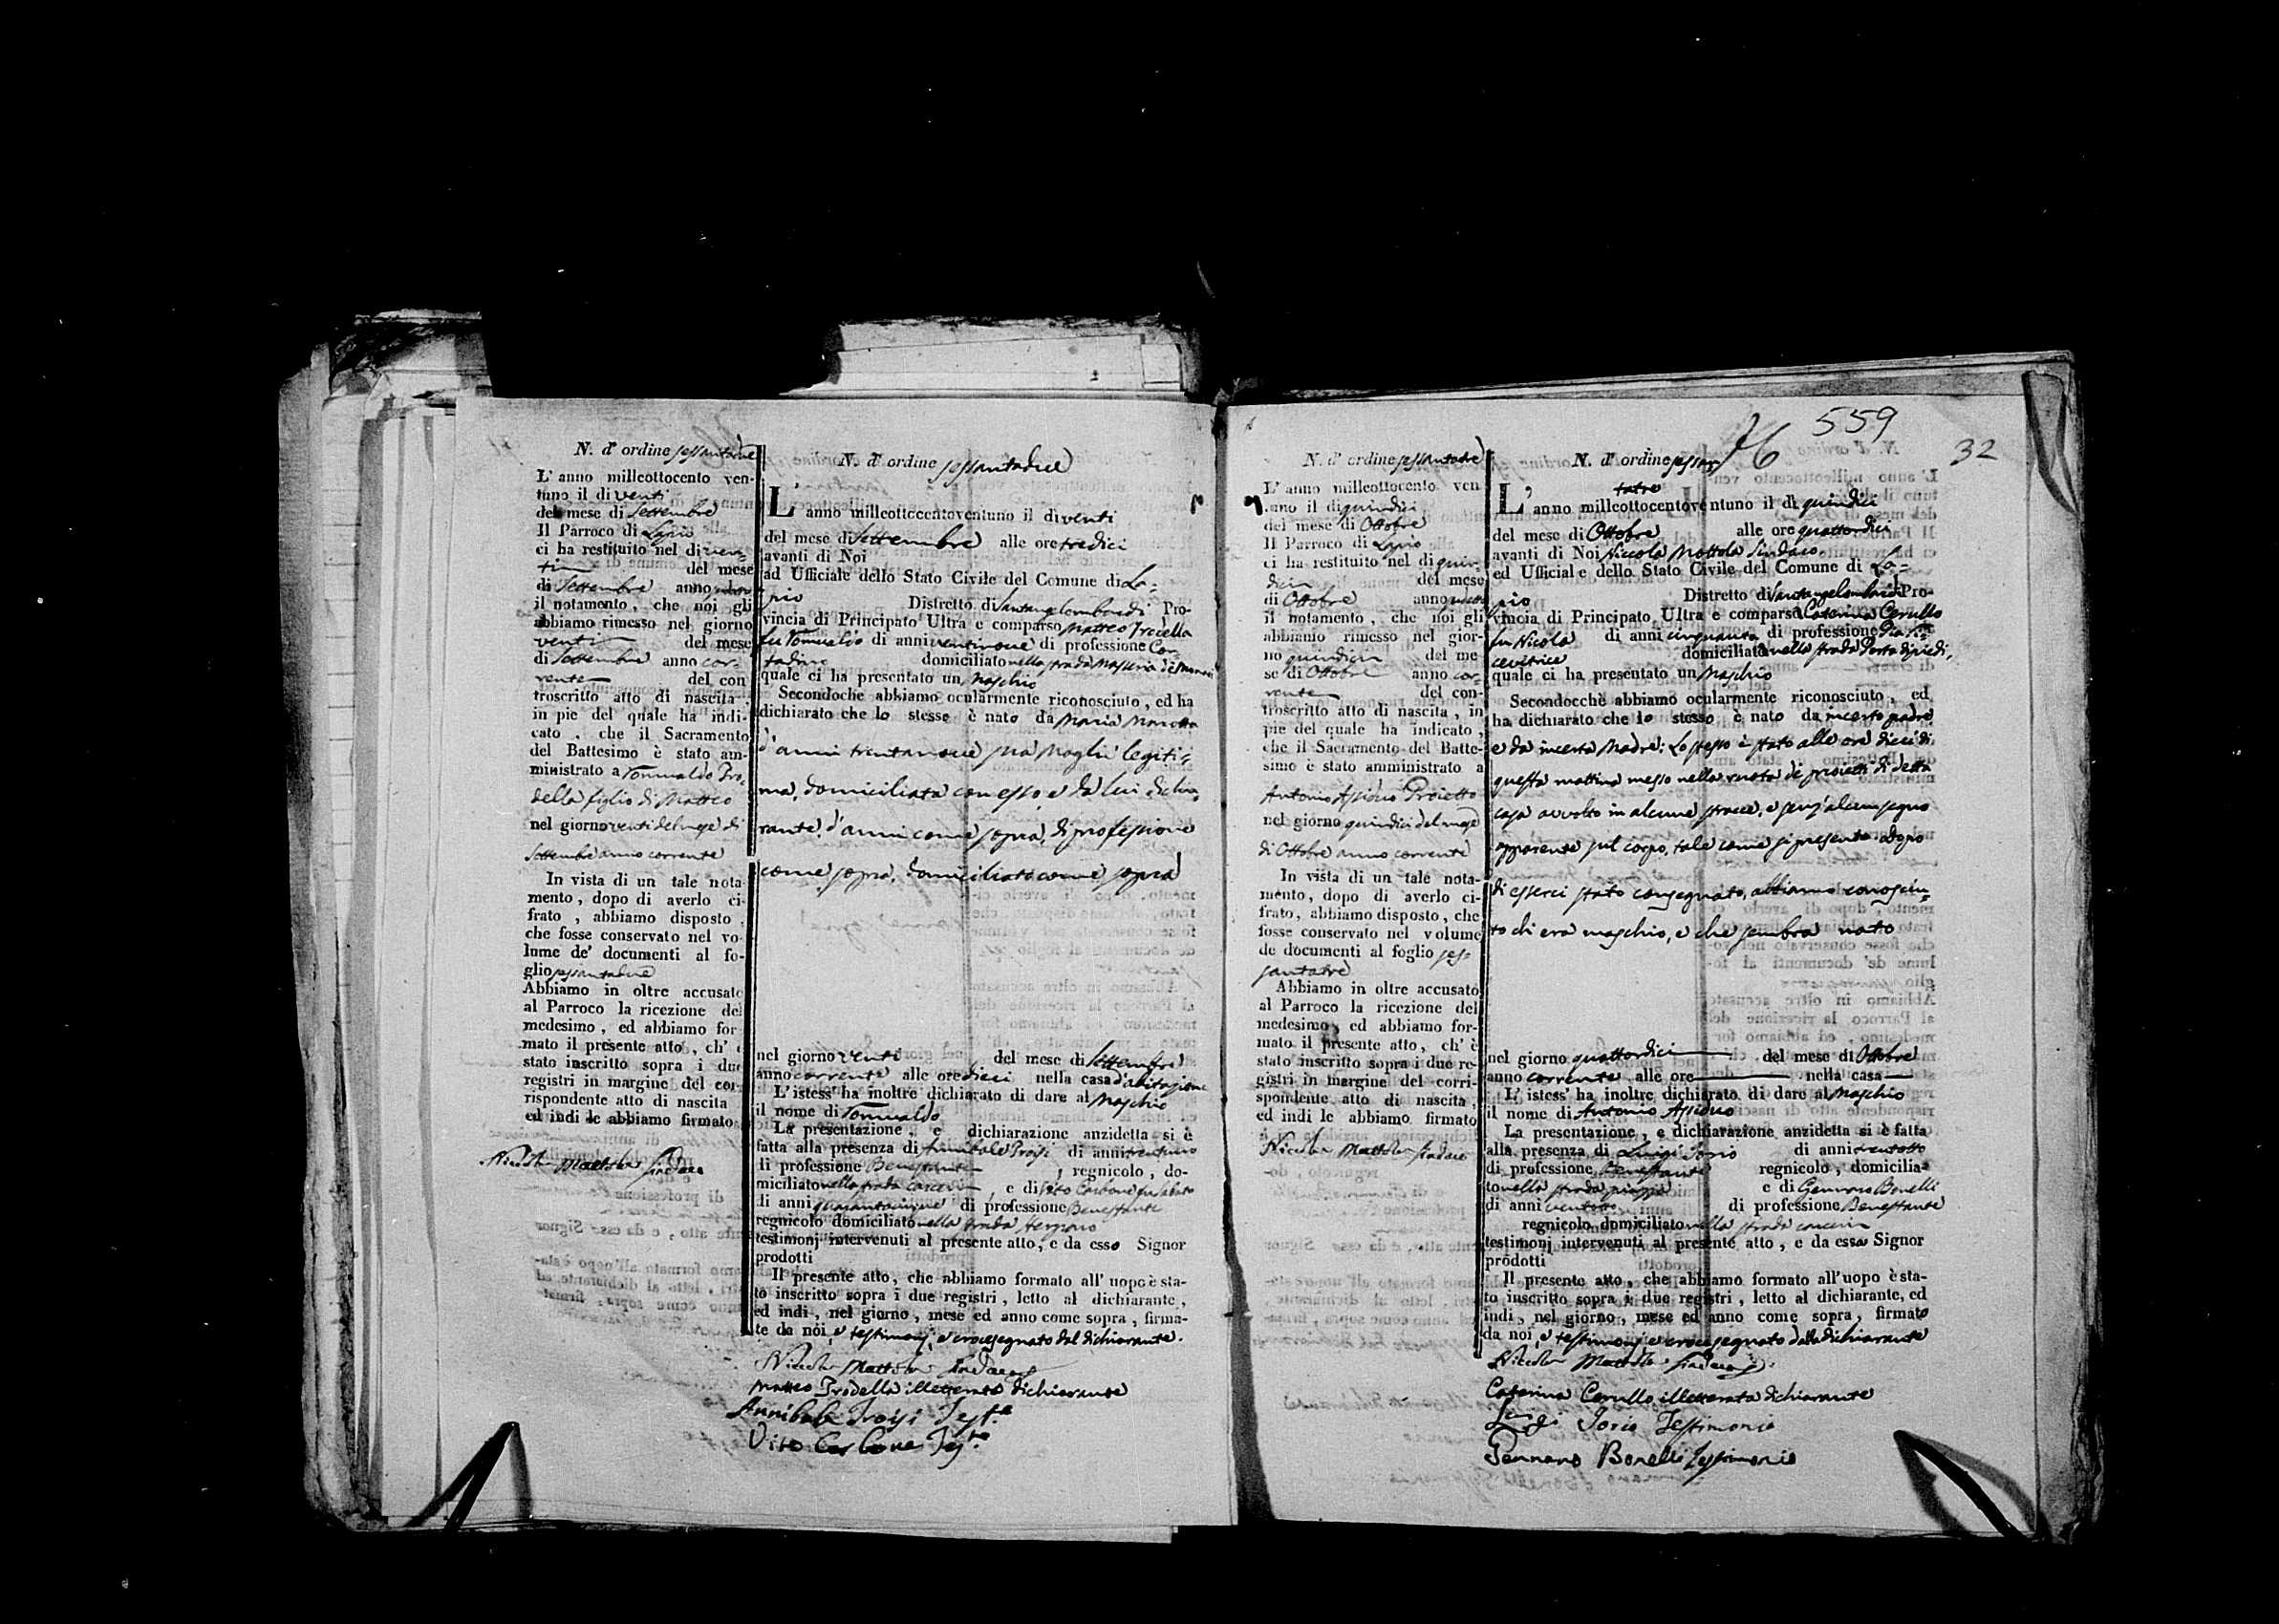 N. d' ordine sessantadue
L' anno milleottocento ven-
tuno il dì venti
del mese di Settembre
Il Parroco di Lapio
ci ha restituito nel dì ven-
ti del mese
di Settembre anno
il notamento, che noi gli
abbiamo rimesso nel giorno
venti del mese
di Settembre anno cor-
rente del con
troscritto atto di nascita
in piè del quale ha indi-
cato, che il Sacramento
del Battesimo è stato am-
ministrato a Tomualdo Tro-
della figlio di Matteo
nel giorno venti del mese di
Settembre anno corrente
In vista di un tale nota-
mento, dopo di averlo ci-
frato, abbiamo disposto,
che fosse conservato nel vo-
lume de' documenti al fo-
glio sessantadue
Abbiamo in oltre accusato
al Parroco la ricezione del
medesimo, ed abbiamo for-
mato il presente atto, ch' è
stato inscritto sopra i due
registri in margine del cor-
rispondente atto di nascita
ed indi le abbiamo firmato
Niccola Mottola Sindaco
N. d' ordine sessantadue
L' anno milleottocentoventuno il dì venti
del mese di Settembre alle ore tredici
avanti di Noi
ad Ufficiale dello Stato Civile del Comune di La-
pio Distretto di Santangelombardi Pro-
vincia di Principato Ultra è comparso Matteo Trodella
fu Tomualdo di anni ventinove di professione Con-
tadino domiciliato nella strada
quale ci ha presentato un Maschio
Secondoche abbiamo ocularmente riconosciuto, ed ha
dichiarato che lo stesso è nato da Maria
d'anni trentanove sua Moglie legiti-
ma, domiciliata con esso, e da lui dichia-
rante, d'anni come sopra, di professione
come sopra, domiciliato come sopra
nel giorno venti del mese di Settembre
anno corrente alle ore dieci nella casa d'abitazione
L'istess' ha inoltre dichiarato di dare al Maschio
il nome di Tomualdo
La presentazione, e dichiarazione anzidetta si è
fatta alla presenza di Annibale Troisi di anni
di professione Benestante, regnicolo, do-
miciliato nella strada, e di Vito Carbone fu Sabato
di anni quarantacinque di professione Benestante
regnicolo domiciliato nella strada
testimonj intervenuti al presente atto, e da esso Signor
prodotti
Il presente atto, che abbiamo formato all' uopo è sta-
to inscritto sopra i due registri, letto al dichiarante,
ed indi, nel giorno, mese ed anno come sopra, firma-
te da noi, e testimonj, e crocesegnato dal dichiarante.
Niccola Mottola Sindaco
Matteo Trodella illetterato dichiarante
Annibale Troisi Test.e
Vito Carbone Test.o
559
32
N. d' ordine sessantatrè
L' anno milleottocento ven
tuno il dì quindici
del mese di Ottobre
Il Parroco di Lapio
ci ha restituito nel dì quin-
dici del mese
di Ottobre anno
il notamento, che noi gli
abbiamo rimesso nel gior-
no quindici del me-
se di Ottobre anno cor-
rente del con-
troscritto atto di nascita, in
piè del quale ha indicato,
che il Sacramento del Batte-
simo è stato amministrato a
Antonio Assiduo Proietto
nel giorno quindici del mese
di Ottobre anno corrente
In vista di un tale nota-
mento, dopo di averlo ci-
frato, abbiamo disposto, che
fosse conservato nel volume
de documenti al foglio ses-
santatrè
Abbiamo in oltre accusato
al Parroco la ricezione del
medesimo, ed abbiamo for-
mato il presente atto, ch' è
stato inscritto sopra i due re-
gistri in margine del corri-
spondente atto di nascita,
ed indi le abbiamo firmato
Niccola Mottola Sindaco
N. d' ordine sessan
tatrè
L' anno milleottocentoventuno il dì quindici
del mese di Ottobre alle ore quattordici
avanti di Noi Niccola Mottola Sindaco
ed Ufficiale dello Stato Civile del Comune di La-
pio Distretto di Santangelombardi Pro-
vincia di Principato Ultra è comparsa Caterina Cerullo
fu Nicola di anni cinquanta di professione Pia Ri-
cevitrice domiciliata nella strada Porta di piedi,
quale ci ha presentato un Maschio
Secondocchè abbiamo ocularmente riconosciuto, ed
ha dichiarato che lo stesso è nato da incerto padre
e da incerta Madre: Lo stesso è stato alle ore dieci di
questa mattina messo nella ruota de' proietti di detta
casa avvolto in alcune stracce, e senz'alcun segno
apparente sul corpo, tale come si presenta. Dopo
di esserci stato consegnato, abbiamo conosciu-
to ch'era maschio, e che sembra nato
nel giorno quattordici del mese di Ottobre
anno corrente alle ore nella casa
L'istess' ha inoltre dichiarato di dare al Maschio
il nome di Antonio Assiduo
La presentazione, e dichiarazione anzidetta si è fatta
alla presenza di Luigi Iorio di anni ventotto
di professione Benestante regnicolo, domicilia-
to nella strada piazza e di Gennaro Bonelli
di anni di professione Benestante
regnicolo domiciliato nella strada
testimonj intervenuti al presente atto, e da essa Signor
prodotti
Il presente atto, che abbiamo formato all'uopo è sta-
to inscritto sopra i due registri, letto al dichiarante, ed
indi, nel giorno, mese ed anno come sopra, firmato
da noi, e testimonj, e crocesegnato dalla dichiarante
Niccola Mottola Sindaco
Caterina Cerullo illetterata dichiarante
Luigi Iorio Testimonio
Gennaro Bonelli Testimonio